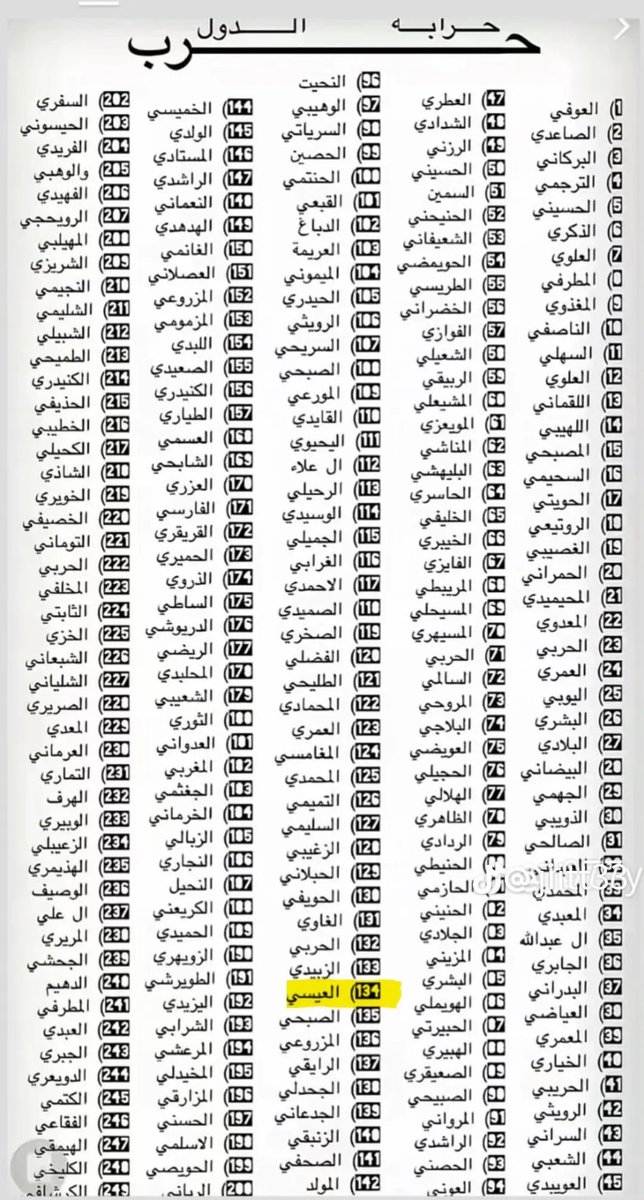 حرابة الدول
حرب
1) العوفي
2) الصاعدي
3) البركاني
4) الترجمي
5) الحسيني
6) الذكري
7) العلوي
8) المطرفي
9) المغذوي
10) الناصفي
11) السهلي
12) العلوي
13) اللقماني
14) اللهيبي
15) المصبحي
16) السحيمي
17) الحويتي
18) الروتيعي
19) الغصيبي
20) الحمراني
21) المحيميدي
22) المعدوي
23) الحربي
24) العمري
25) اليوبي
26) البشري
27) البلادي
28) البيضاني
29) الجهمي
30) الذويبي
31) الصالحي
34) المعبدي
35) ال عبدالله
36) الجابري
37) البدراني
38) العياضي
39) المعمري
40) الخياري
41) الحريبي
42) الرويثي
43) السراني
44) الشعبي
45) العوبيدي
47) العطري
48) الشدادي
49) الرزني
50) الحسيني
51) السمين
52) الحنيحني
53) الشعيفاني
54) الحويمضي
55) الطريسي
56) الخضراني
57) الفوازي
58) الشعيلي
59) الربيقي
60) المشيعلي
61) المويعزي
62) المناشي
63) البليهشي
64) الحاسري
65) الخليفي
66) الخيبري
67) الفايزي
68) المريبطي
69) المسيحلي
70) المسيهري
71) الحربي
72) السالمي
73) المروحي
74) البلاجي
75) العويضي
76) الحجيلي
77) الهلالي
78) الظاهري
79) الردادي
الحنيطي
الحازمي
82) الحنيني
83) الجلادي
84) المزيني
85) البشري
86) الهويملي
87) الحبيرتي
88) الهبيري
89) الصعيقري
90) الصبيحي
91) المرواني
92) الراشدي
93) الحصني
94) العوني
96) النحيت
97) الوهيبي
98) السرياتي
99) الحصين
100) الحنتمي
101) القبعي
102) الدباغ
103) العريمة
104) الميموني
105) الحيدري
106) الرويثي
107) السريحي
108) الصبحي
109) المورعي
110) القايدي
111) اليحيوي
112) ال علاء
113) الرحيلي
114) الوسيدي
115) الجميلي
116) الغرابي
117) الاحمدي
118) الصميدي
119) الصخري
120) الفضلي
121) الطليحي
122) المحمادي
123) العمري
124) المغامسي
125) المحمدي
126) التميمي
127) السليمي
128) الزغيبي
129) الحبلاني
130) الحويفي
131) الغاوي
132) الحربي
133) الزبيدي
134) العيسي
135) الصبحي
136) المزروعي
137) الرايقي
138) الجحدلي
139) الجدعاني
140) الزنبقي
141) الصحفي
142) المولد
144) الخميسي
145) الولدي
146) المستادي
147) الراشدي
148) النعماني
149) الهدهدي
150) الغانمي
151) العصلاني
152) المزروعي
153) المزمومي
154) اللبدي
155) الصعيدي
156) الكنيدري
157) الطياري
168) العسمي
169) الشابحي
170) العزري
171) الفارسي
172) القريقري
173) الحميري
174) الذروي
175) الساطي
176) الدريوشي
177) الريضي
178) المحلبدي
179) الشعيبي
180) الثوري
181) العدواني
182) المغربي
183) الجغثمي
184) الخرماني
185) الزبالي
186) النجاري
187) النحيل
188) الكريعني
189) الحميدي
190) الزويهري
191) الطويرشي
192) اليزيدي
193) الشرابي
194) المرعشي
195) المخيدلي
196) المزارقي
197) الحسني
198) الاسلمي
199) الحويصي
200) الرباني
202) السفري
203) الحيسوني
204) الفريدي
205) والوهبي
206) الفهيدي
207) الرويحجي
208) المهيلبي
209) الشريزي
210) النجيمي
211) الشليمي
212) الشبيلي
213) الطميحي
214) الكنيدري
215) الحذيفي
216) الخطيبي
217) الكحيلي
218) الشاذي
219) الخويري
220) الخصيفي
221) التوماني
222) الحربي
223) المخلفي
224) الثابتي
225) الخزي
226) الشبعاني
227) الشلياني
228) الصريري
229) المعدي
230) العرماني
231) التماري
232) الهرف
233) الوبيري
234) الزعيبلي
235) الهذيمري
236) الوصيف
237) ال علي
238) المريري
239) الجحشي
240) الدهيم
241) المطرفي
242) العبدي
243) الجبري
244) الدويعري
245) الكتمي
246) الفقاعي
247) الهيمقي
248) الكليخي
249) الكرشافي